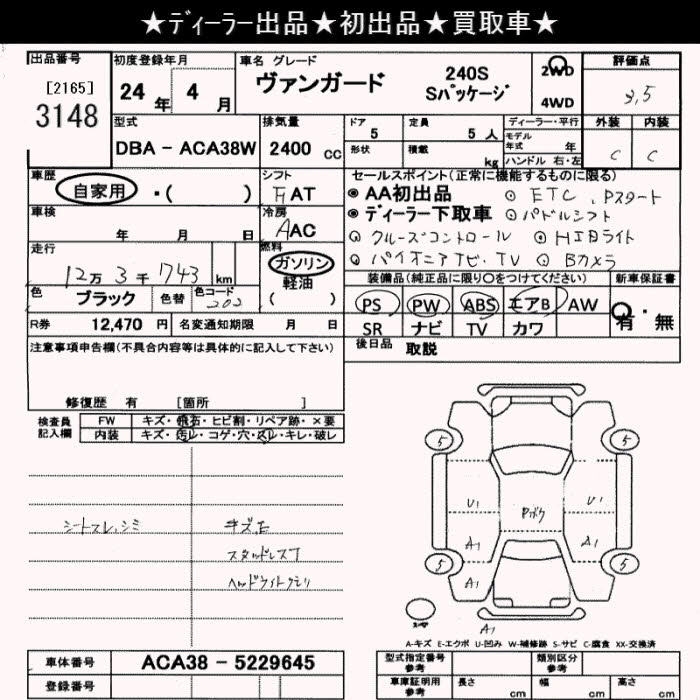 ★ディーラー出品★初出品★買取車★
出品番号
[2165]
3148
初度登録年月
24 年 4 月
車名 グレード
ヴァンガード 240S Sパッケージ
2WD
4WD
評価点
3,5
型式
DBA - ACA38W
排気量
2400 cc
ドア 5
定員 5 人
形状
積載 kg
ディーラー・平行
モデル年式 年
ハンドル 右・左
外装 内装
C C
車歴
自家用 ・( )
シフト
AT
車検
年 月 日
冷房
AAC
走行
12万3千1743 km
燃料
ガソリン
軽油
( )
色 ブラック 色替 色コード 202
R券 12,470 円 名変通知期限 月 日
セールスポイント(正常に機能するものに限る)
AA初出品 ETC、Pスタート
ディーラー下取車 パドルシフト
クルーズコントロール HIDライト
パイオニアナビ・TV Bカメラ
装備品(純正品に限り○をつけてください) 新車保証書
PS PW ABS エアB AW
SR ナビ TV カワ
有・無
後日品 取説
注意事項申告欄(不具合内容等は具体的に記入して下さい)
修復歴 有 [箇所 ]
検査員記入欄
FW キズ・飛石・ヒビ割・リペア跡・×要
内装 キズ・汚レ・コゲ・穴・スレ・キレ・破レ
シートスレ、シミ
キズ、E
スタッドレス
ヘッドライトクモリ
5 5
U1 U1
Pボク
A1 A1
5 5
A1
A1
A-キズ E-エクボ U-凹み W-補修跡 S-サビ C-腐食 XX-交換済
車体番号 ACA38 - 5229645
登録番号
型式指定番号 参考
類別区分 参考
車庫証明用 参考
長さ cm
幅 cm
高さ cm